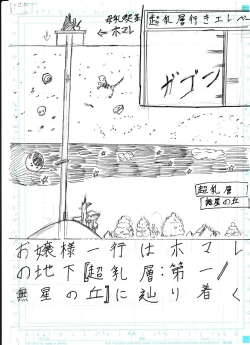 母乳喫茶
←ホマレ
超乳層行きエレベ
ガゴン
超乳層
無星の丘
お嬢様一行はホマレ
の地下【超乳層:第一/
無星の丘】に辿り着く